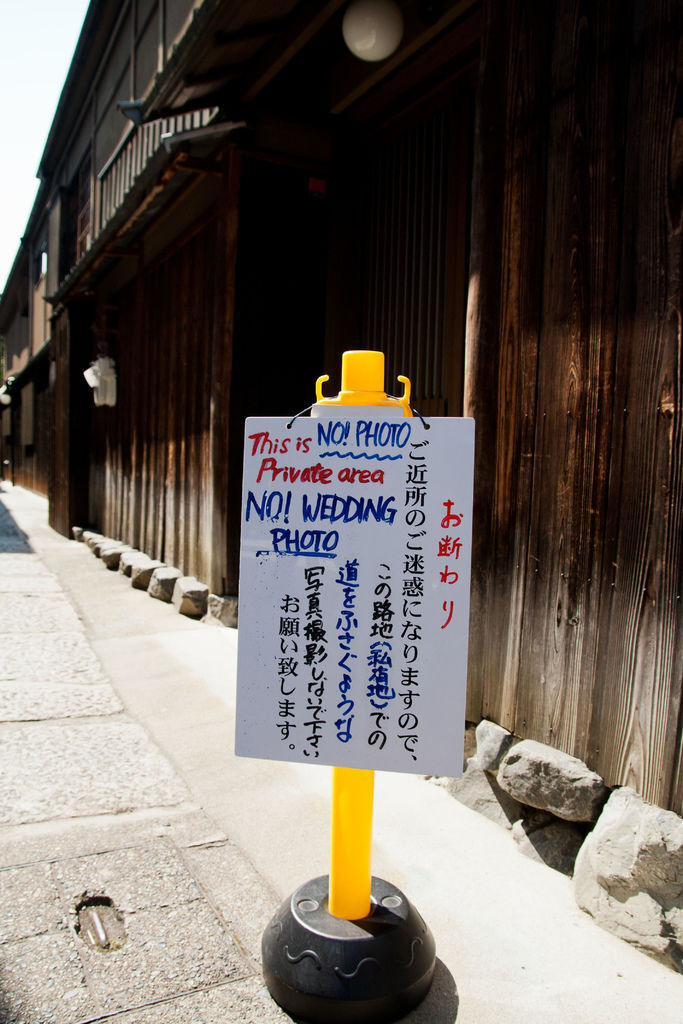 This is
Private area
NO! PHOTO
NO! WEDDING
PHOTO
お断わり
ご近所のご迷惑になりますので、
この路地(私有地)での
道をふさぐような
写真撮影しないで下さい
お願い致します。